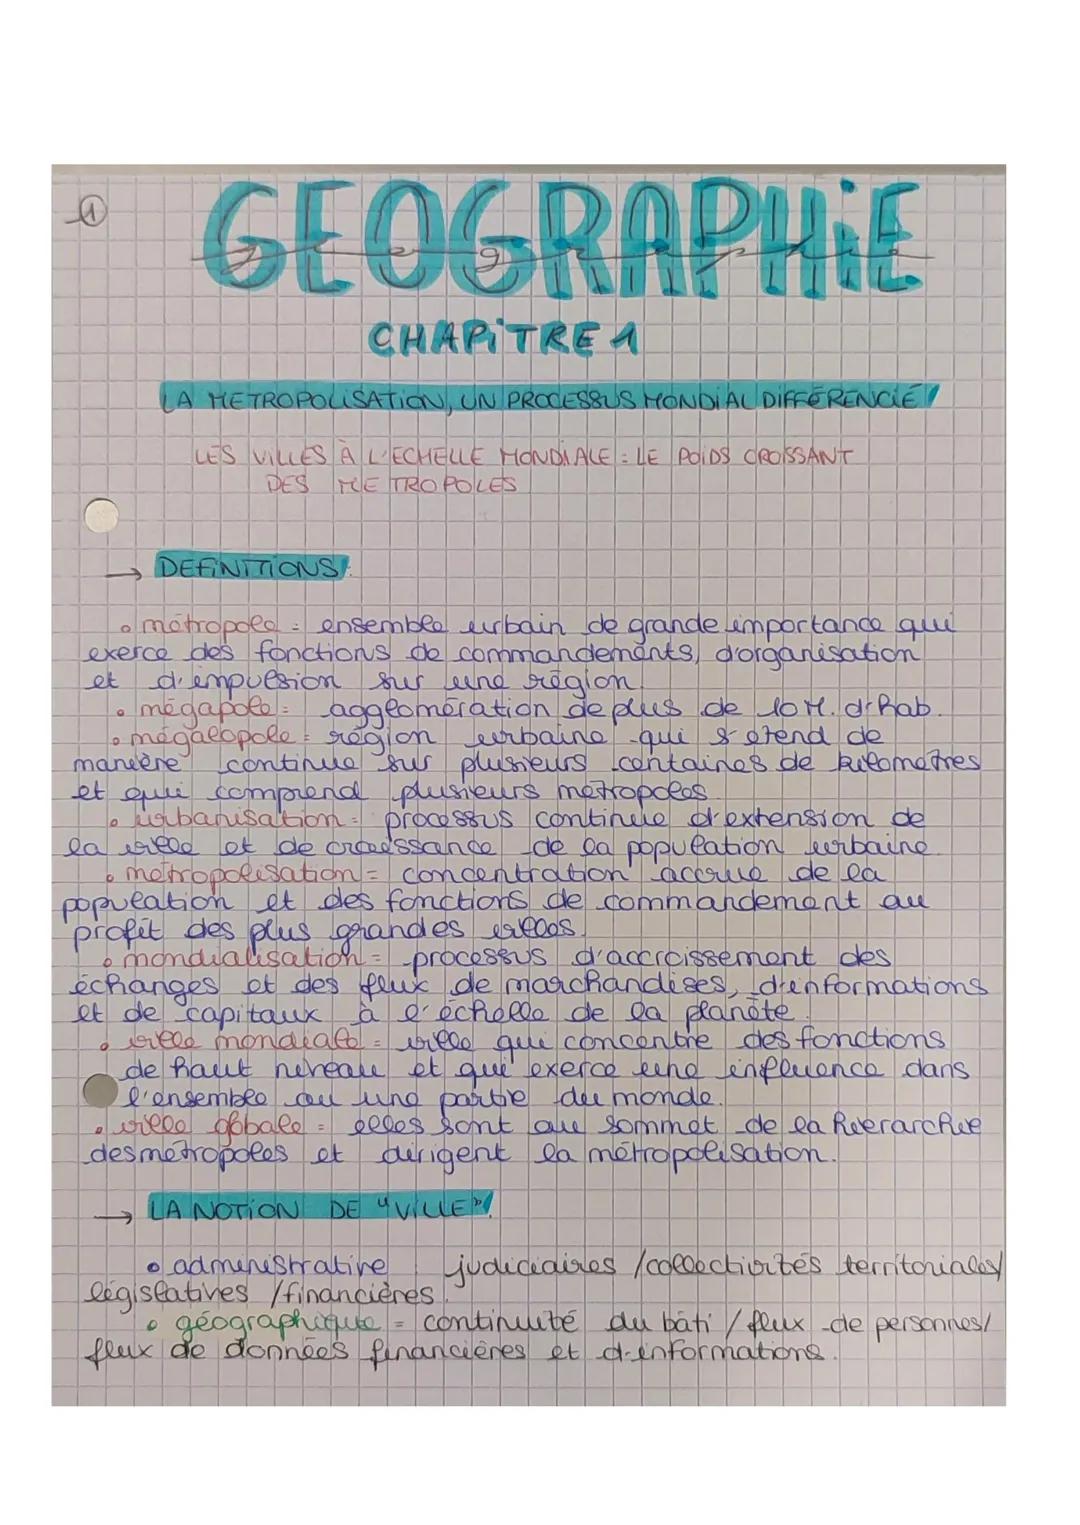 1
GEOGRAPHiE
geographie
CHAPiTRE 1
LA METROPOLiSATiON, UN PROCESSUS MONDiAL DiFFÉRENCiÉ
LES ViLLES À L'ECHELLE MONDiALE : LE POiDS CROiSSANT
DES METROPOLES
→ DEFiNiTiONS :
• métropole = ensemble urbain de grande importance qui
exerce des fonctions de commandements, d'organisation
et d'impulsion sur une région.
• mégapole = agglomération de plus de 10 M. d'hab.
• mégalopole = région urbaine qui s'étend de
manière continue sur plusieurs centaines de kilomètres
et qui comprend plusieurs métropoles.
• urbanisation = processus continue d'extension de
la ville et de croissance de la population urbaine.
• métropolisation = concentration accrue de la
population et des fonctions de commandement au
profit des plus grandes villes.
• mondialisation = processus d'accroissement des
échanges et des flux de marchandises, d'informations
et de capitaux à l'échelle de la planète.
• ville mondiale = ville qui concentre des fonctions
de haut niveau et qui exerce une influence dans
l'ensemble ou une partie du monde.
• ville globale = elles sont au sommet de la hierarchie
des métropoles et dirigent la métropolisation.
→ LA NOTiON DE "ViLLE" :
• administrative : judiciaires / collectivités territoriales /
législatives / financières.
• géographique = continuité du bâti / flux de personnes /
flux de données financières et d'informations.